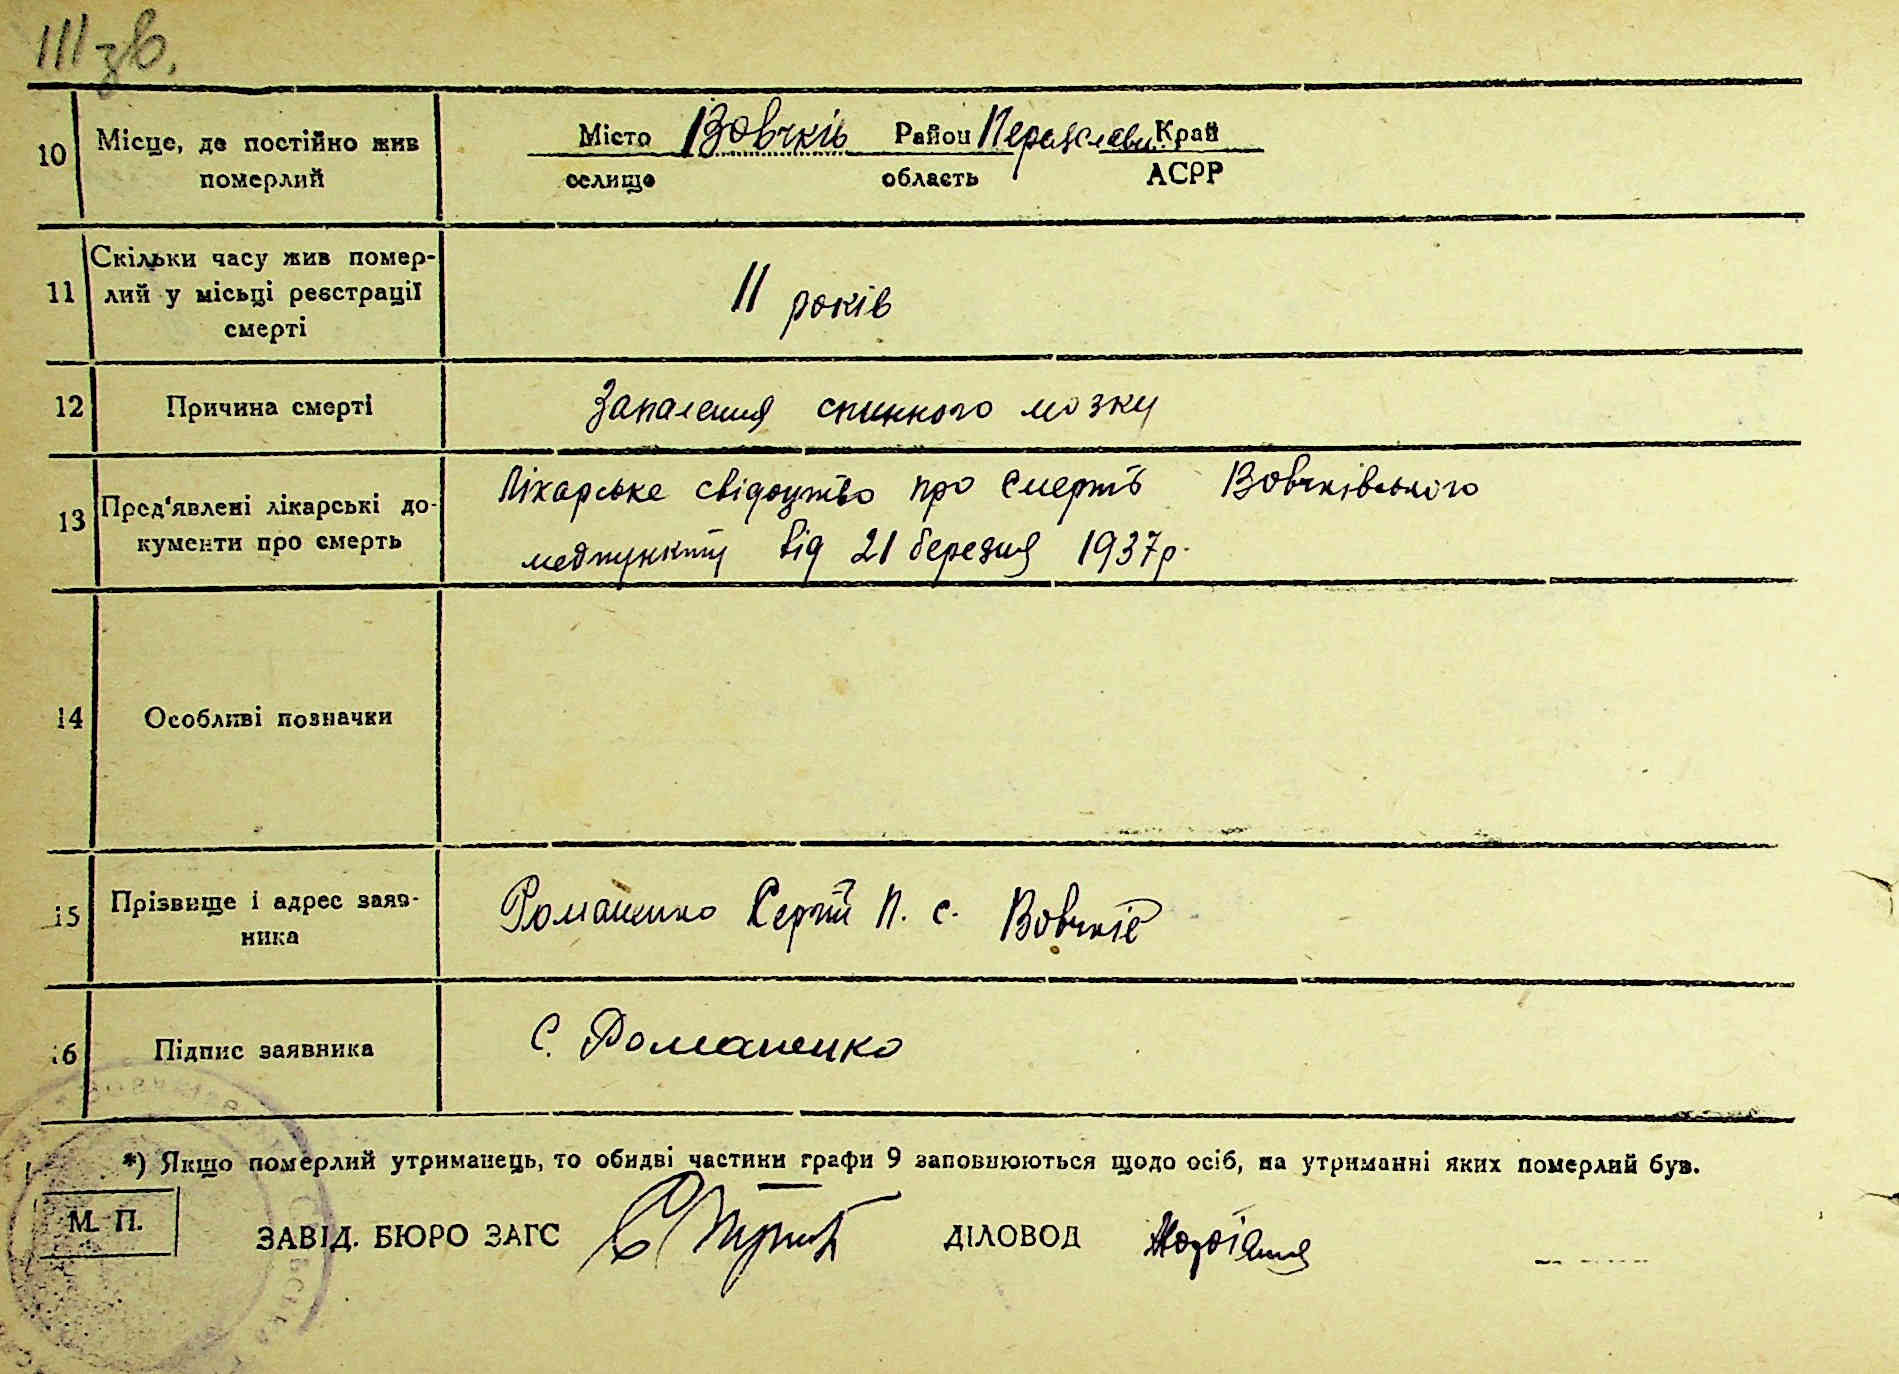 111 зв.
10 Місце, де постійно жив померлий
Місто Вовчків Район Переяславськ Край
селище область АСРР
11 Скільки часу жив помер-
лий у місьці реєстрації
смерті
11 років
12 Причина смерті Запалення спинного мозку
13 Пред'явлені лікарські до-
кументи про смерть
Лікарське свідоцтво про смерть Вовчківського
медпункту від 21 березня 1937р.
14 Особливі позначки
15 Прізвище і адрес заяв-
ника
Романенко Сергій П. с. Вовчків
16 Підпис заявника С. Романенко
*) Якщо померлий утриманець, то обидві частини графи 9 заповнюються щодо осіб, на утриманні яких померлий був.
М. П.
ЗАВІД. БЮРО ЗАГС ДІЛОВОД